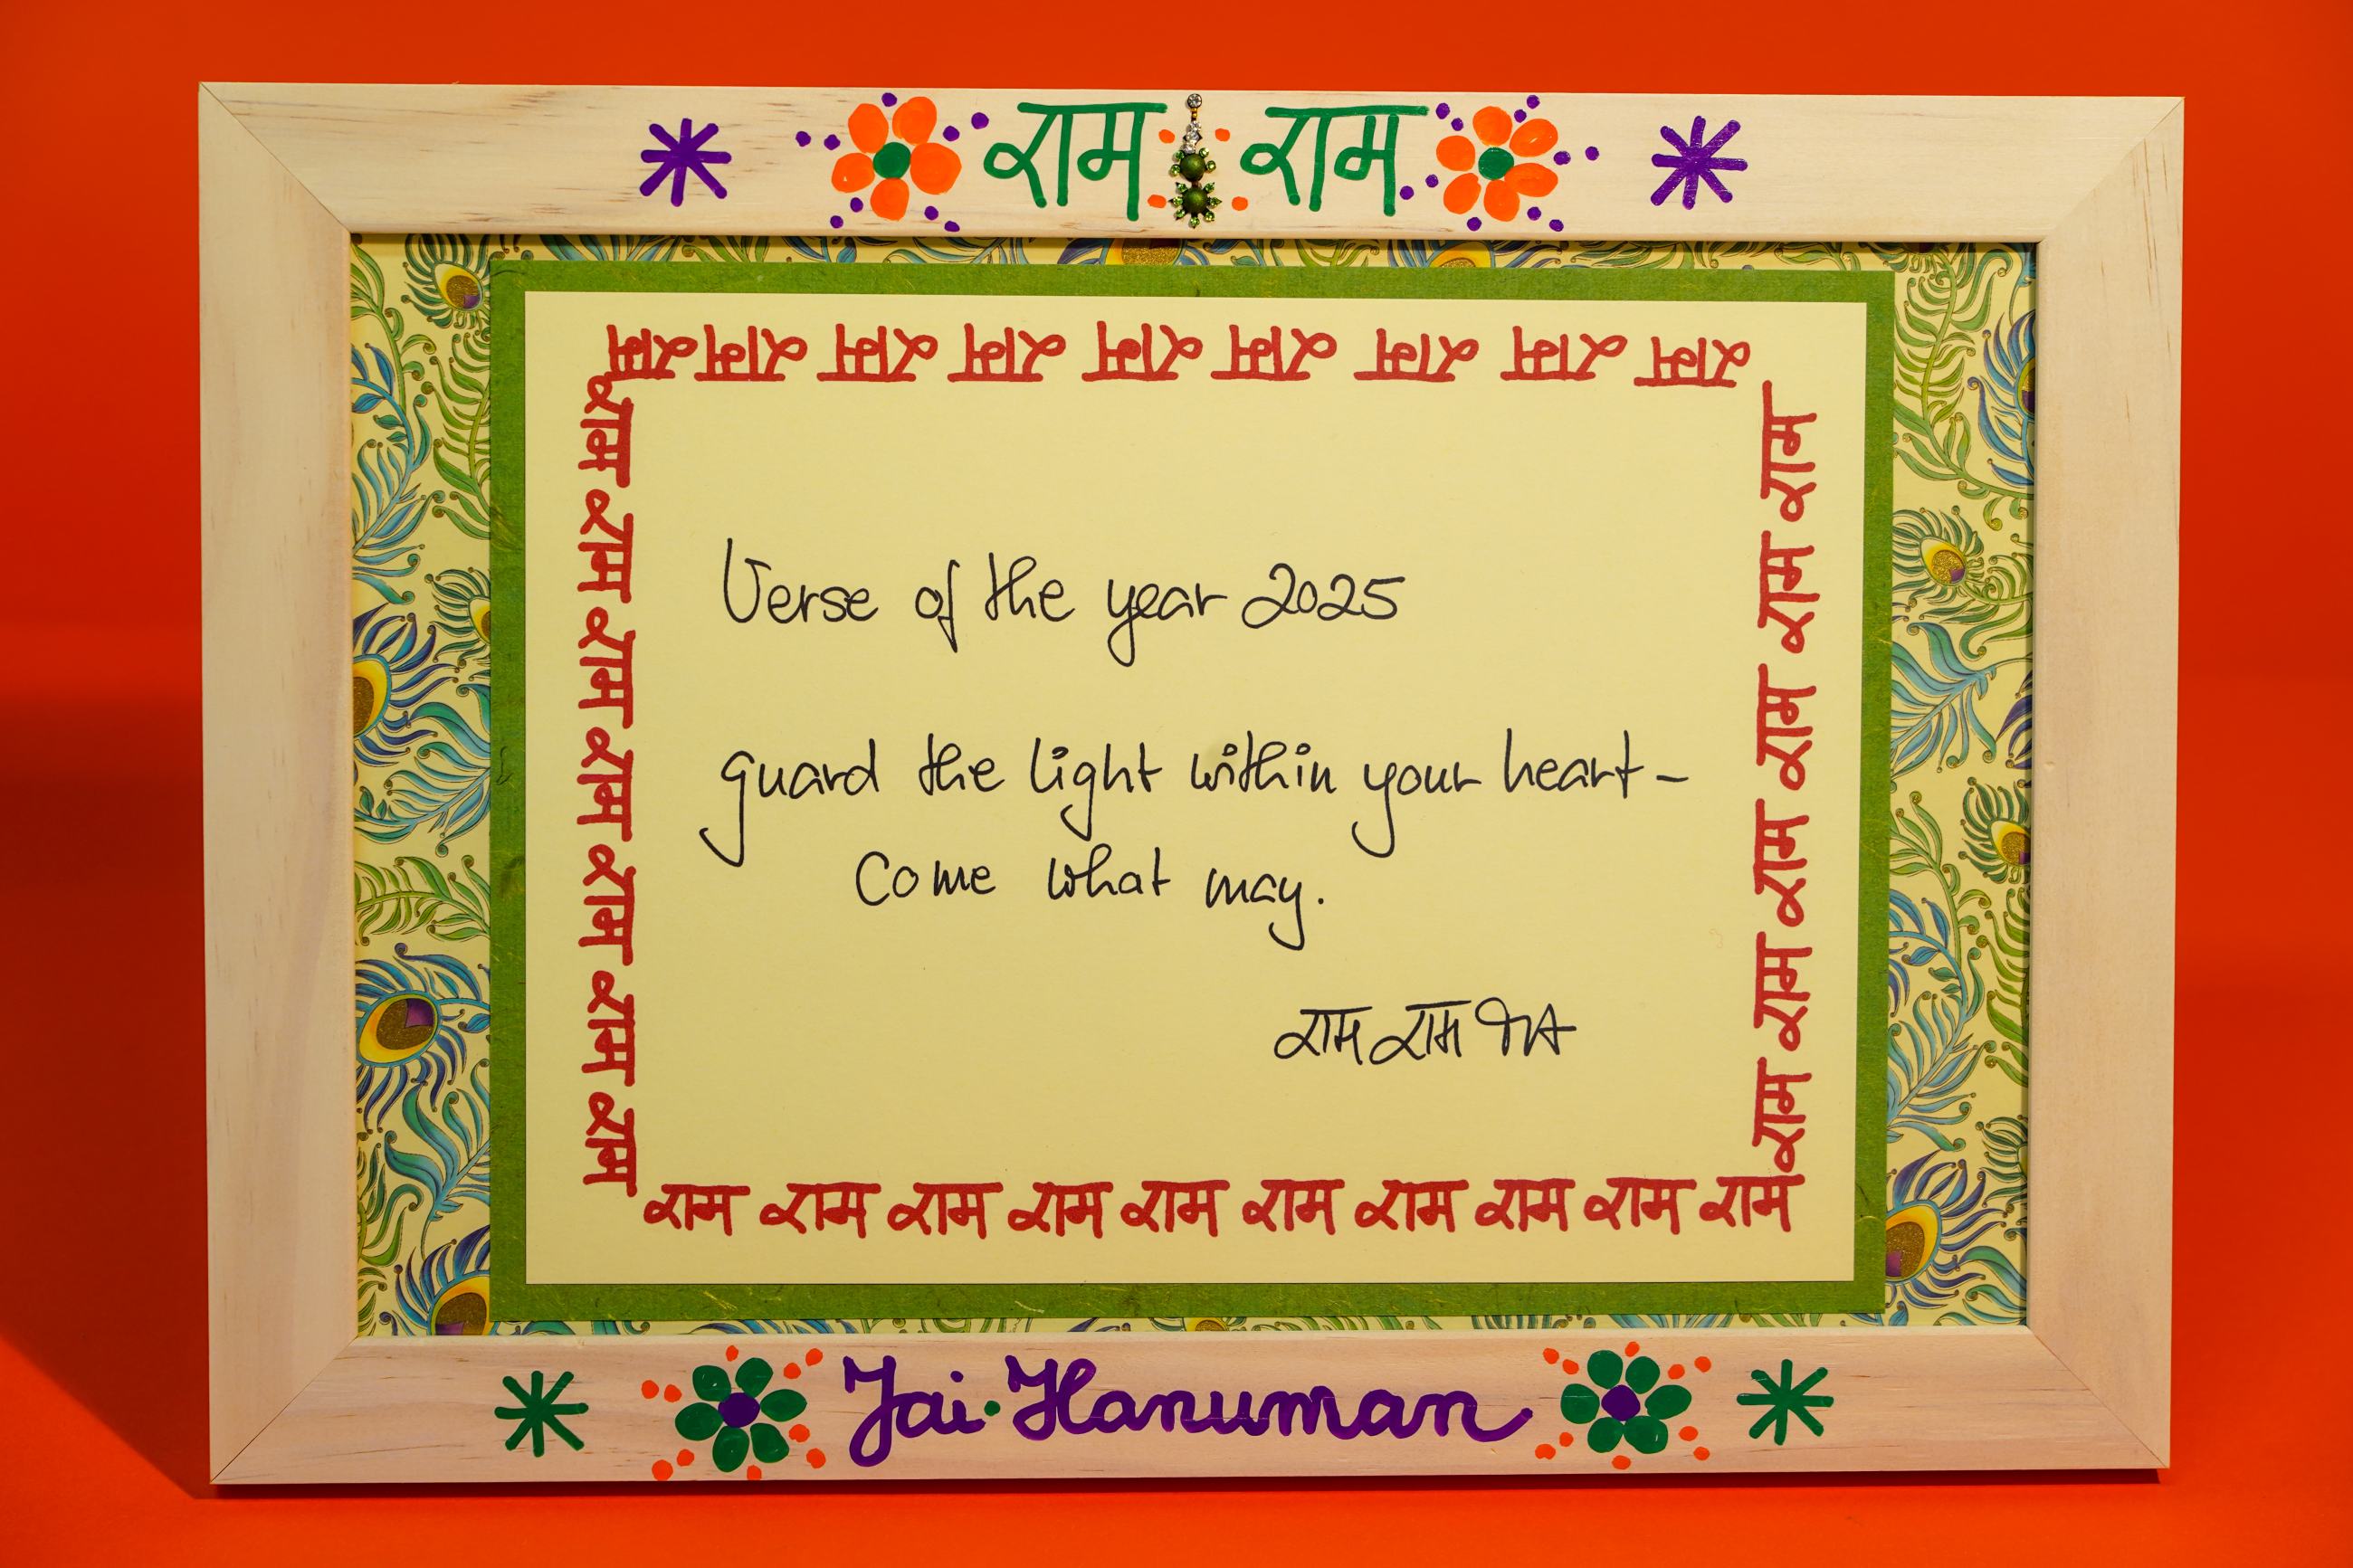 राम राम
राम राम राम राम राम राम राम राम राम
राम राम राम राम राम राम
राम राम राम राम राम राम राम
Verse of the year 2025
guard the light within your heart –
Come what may.
राम राम
राम राम राम राम राम राम राम राम राम राम
Jai·Hanuman